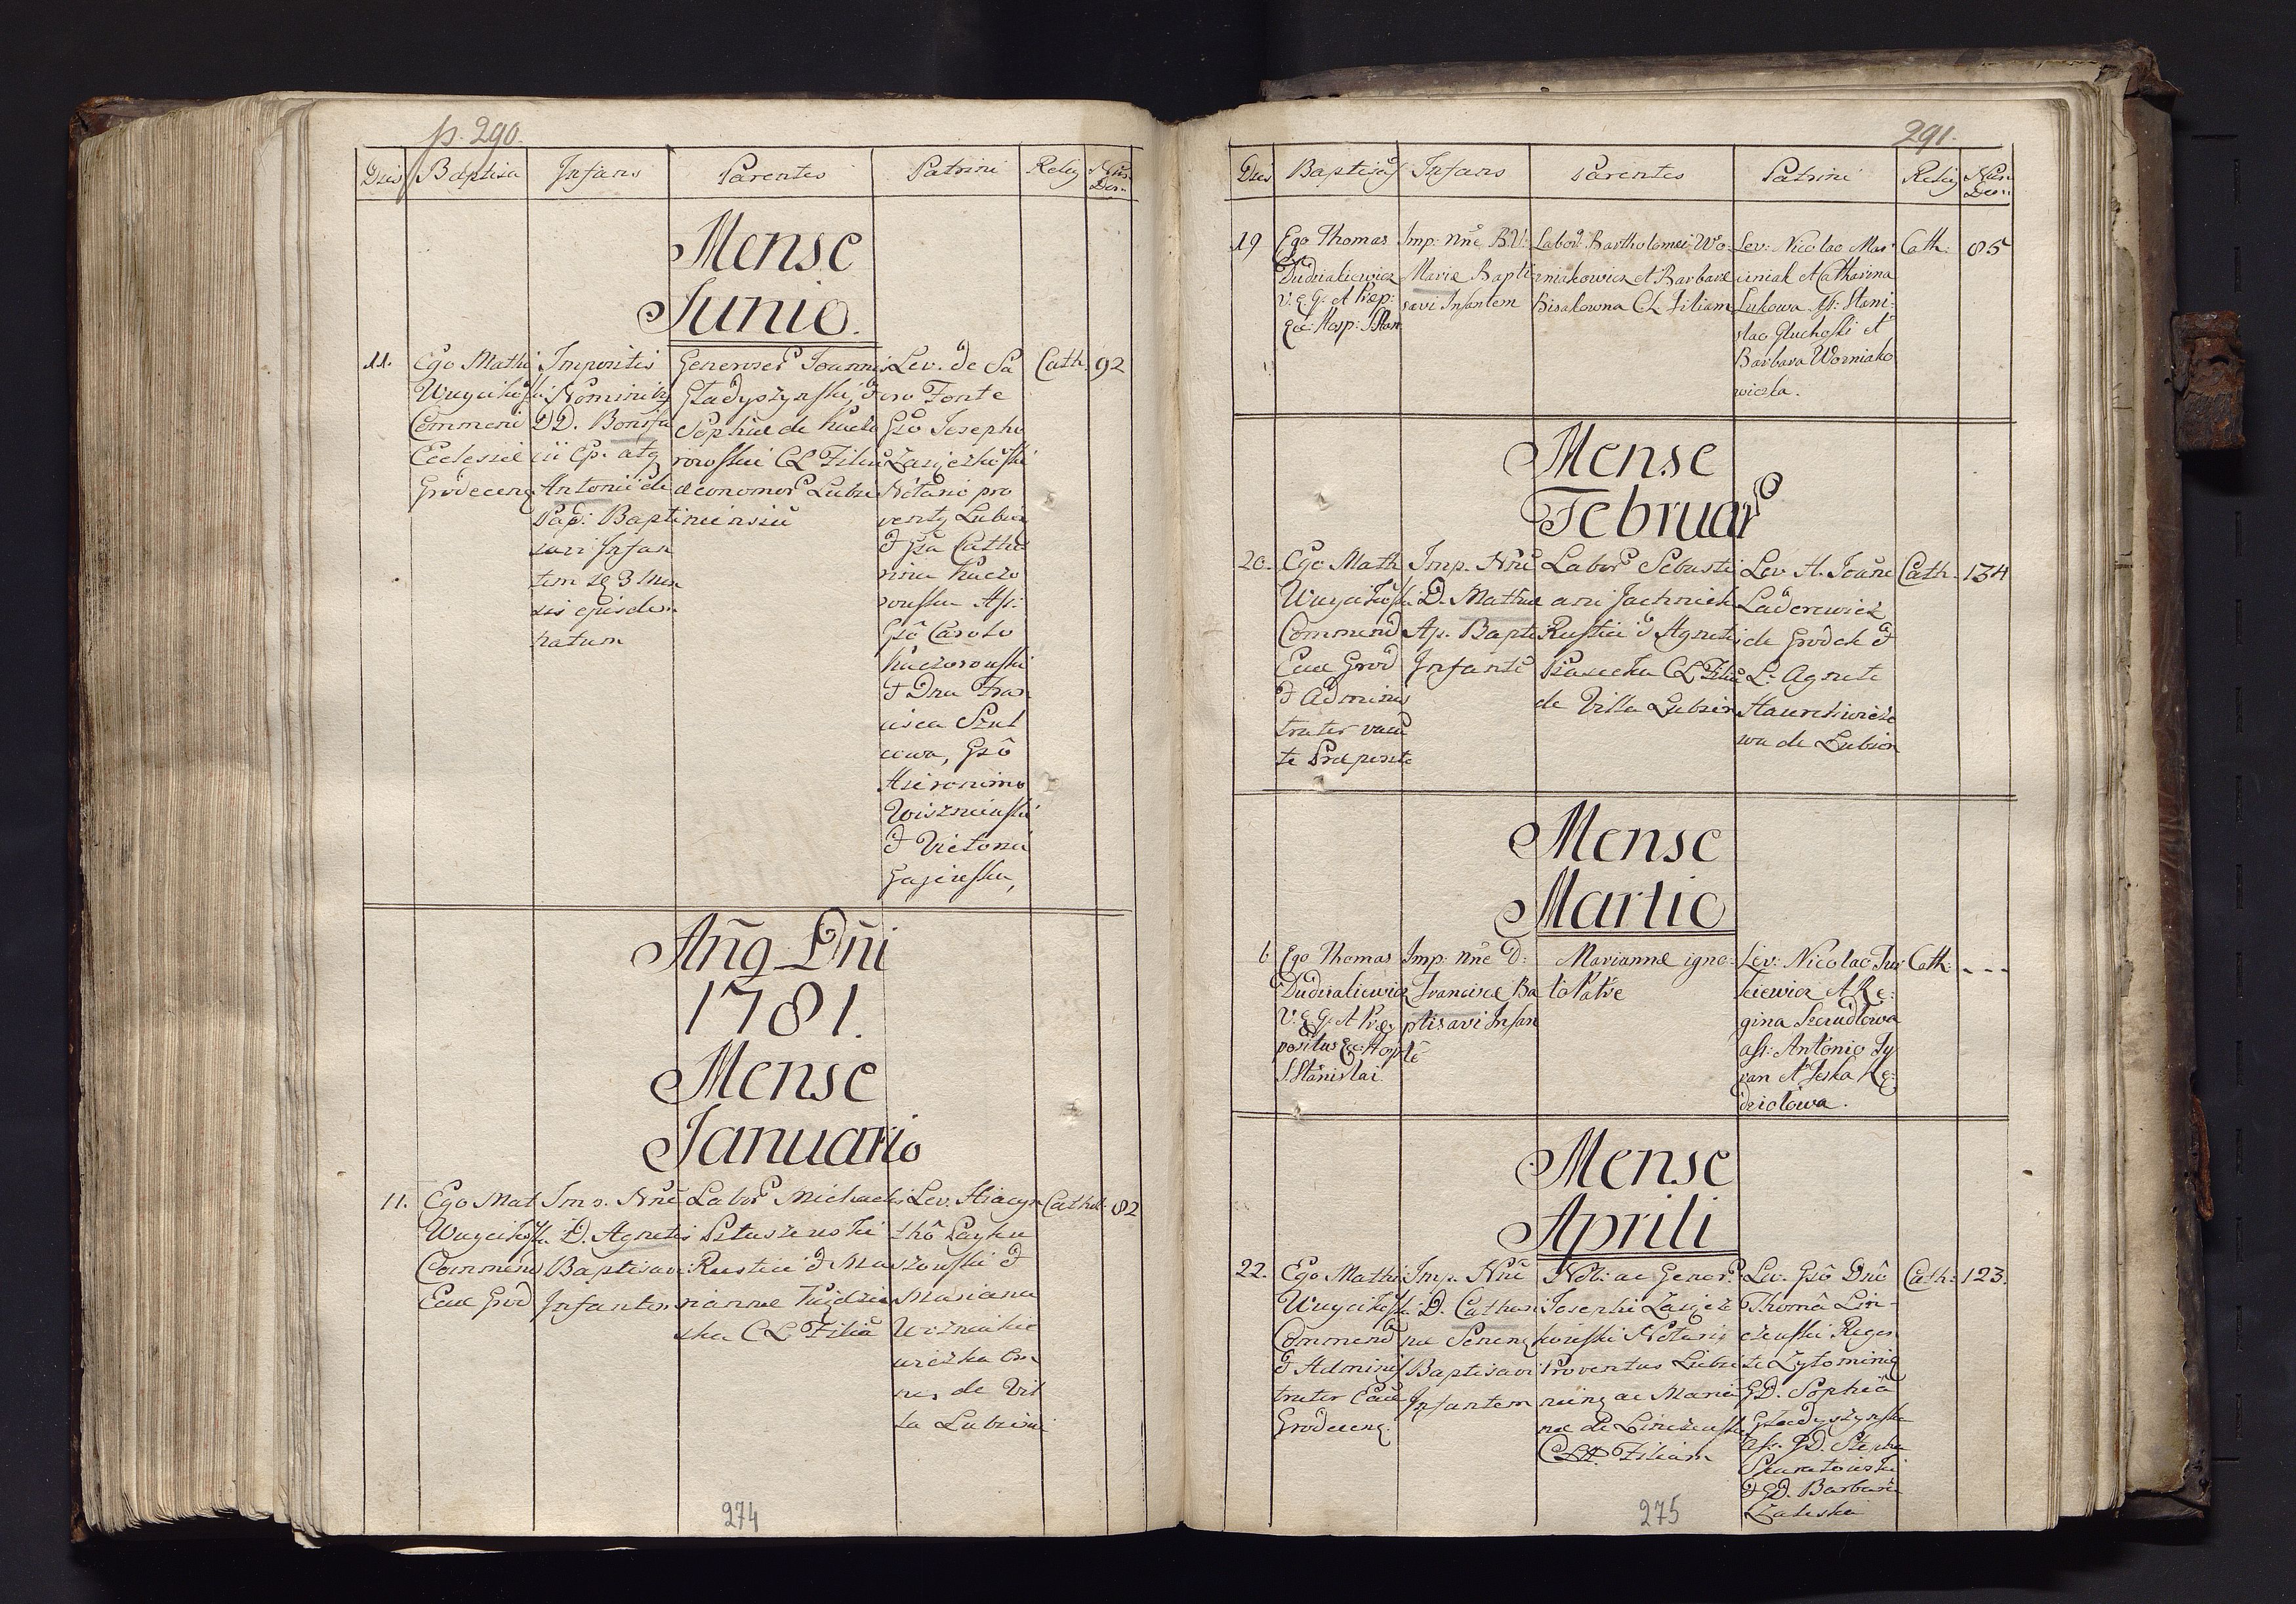 p. 290.
Dies Baptisa Infans Parentes Patrini Relig Nūs Dom.
Mense
Junio.
11.
Ego Mathi
Wuycikoſki
Commend
Ecclesiæ
Grodecens
Impositis
Nominib9
DD. Bonifa
cii Ep. atq
Antonii de
Pad: Bapti
savi Infan
tem
natum
Generosor Joannis
Gładyszynſki, &
Sophiæ de
CL Filiū
œconomor Lubzi
niensiū
Lev. de Sa
cro Fonte
Gsō Josepho
Zasięzkoſki
Notario pro
ventus Lubzi
& Gsa Catha
rina Kaczo
rouſka Aſs:
Gsō Carolo
Kaczorouſki
& Dna Fran
cisca Szul
cowa, Gsō
Hieronimo
Wiszniewſki
& Victoria
Gajewſka,
Cath.
92
Añō Dñi
1781.
Mense
Januario
11.
Ego Mat
Wuycikoſki
Commend
Eccl Grod
Imp. Nñē
D. Agnetis
Baptisavi
Infantem
Labor Michaelis
Rustici & Ma
riannæ
CL Filiā
Lev. Hiacyn
thō
&
Mariana
Wozniako
wiczka Om
nes de Vil
la Lubzini
Cathol.
82
274
291.
Dies Baptisaſ Infans Parentes Patrini Relig Num Dom:
19
Ego Thomas
Dudzialiewicz
V. E. G. et Præp:
Ecc: Hosp: S Stan
Imp: nñē B.V.
Mariæ Bapti
savi Infantem
Labor: Bartholomei Wo-
zniakowicz et Barbaræ
Bisakowna CL Filiam
Lev: Nicolao Mar
ciniak et Catharina
Lukowa. Aſs: Stani-
slao Głuchoſki et
Barbara Wozniako
wiczka.
Cath:
85
Mense
Februar
20.
Ego Math
Wuycikoſki
Commend
Eccl Grod
& Adminis
trator vacā
te Præposit
Imp. Nñē
D. Mathiæ
Ap. Bapti
Infantē
Labor Sebasti
ani Jachnick
Rustici & Agnetis
Piasecka CL Filiū
de Villa Lubzin
Lev. H. Joāne
Laderewicz
de Grodek &
L. Agnete
de Lubzin
Cath.
134
Mense
Martio
6
Ego Thomas
Dudzialiewicz
V. E. G. et Præ
positus Ecc: Hosp
S. Stanislai.
Imp: nñē D:
Franciscæ Ba
ptisavi Infan
tē
Mariannæ igno-
to Patre
Lev: Nicolao Jur
kiewicz et Re-
gina Szczudłowa
aſs: Antonio Ty
ran et
dziołowa.
Cath:
---
Mense
Aprili
22.
Ego Mathi
Wuycikoſki
Commend
& Adminis
trator Eccl
Grodecens
Imp. Nñē
D. Cathari
næ Senens
Baptisavi
Infantem
Nob: ac Gener.
Josephi Zasięz
kowſki Notarii
Proventus Lubzi
niens ac Maria
næ de Linczewſki
CLH Filiam
Lev. Gsō Dnō
Thomā Lin-
czewſki Regen
te Zytomiriē
GD. Sophiā
Gładyszynſka
Aſs. GD. Stepha
Skaratowſki
& GD. Barbara
Zaleska
Cath:
123.
275